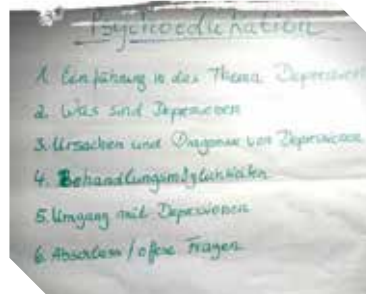 Psychoedukation
1. Einführung in das Thema Depressionen
2. Was sind Depressionen
3. Ursachen und Diagnose von Depressionen
4. Behandlungsmöglichkeiten
5. Umgang mit Depressionen
6. Abschluss / offene Fragen